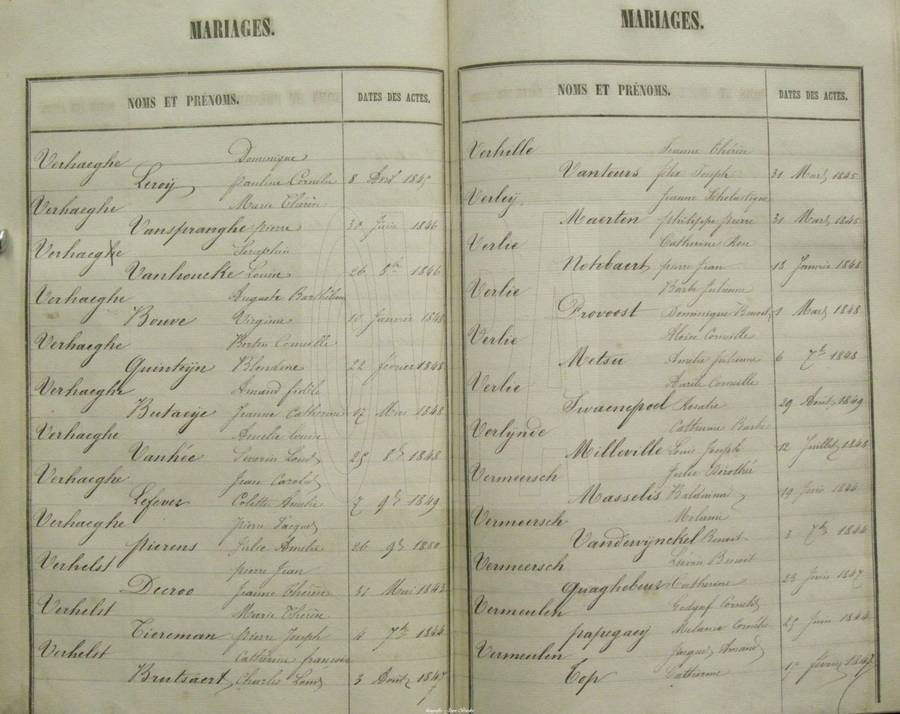 MARIAGES.
NOMS ET PRÉNOMS. DATES DES ACTES.
Verhaeghe Dominique
Leroij pauline Cornelie 8 1845
Verhaeghe Marie Thérèse
Vanspranghe pierre 30 Juin 1846
Verhaeghe Seraphin
Vanhoucke Louise 26 8bre 1846
Verhaeghe Auguste
Bouve Virginie 10 Janvier 1848
Verhaeghe Corneille
Quinteijn Blondine 22 février 1848
Verhaeghe Amand fidèle
Butaeije Jeanne Catherine 17 Mai 1848
Verhaeghe Amelie Louise
Vanhée Severin Louis 25 8bre 1848
Verhaeghe Jean
Lefever Colette Amelie 7 9bre 1849
Verhaeghe pierre Jacques
pierens Julie Amelie 26 9bre 1850
Verhelst pierre Jean
Decroo Jeanne Thérèse 31 Mai 1843
Verhelst Marie Thérèse
Tiereman pierre Joseph 4 7bre 1844
Verhelst Catherine
Brutsaert Charles Louis 3 Août 1847
MARIAGES.
NOMS ET PRÉNOMS. DATES DES ACTES.
Verhille Jeanne Thérèse
Vantours Joseph 31 Mars 1845
Verleij Jeanne Scholastique
Maerten philippe pierre 31 Mars 1845
Verlie Catherine
Notebaert pierre Jean 18 Janvier 1848
Verlie Barbe Julienne
Provoost Dominique Benoit 1 Mars 1848
Verlie Corneille
Metsu Amelie Julienne 6 7bre 1848
Verlie Corneille
Twaenepoel Rosalie 29 Août 1849
Verlijnde Catherine Barbe
Milleville Louis Joseph 12 Juillet 1848
Vermeersch Julie Dorothée
Masselis 19 Juin 1844
Vermeersch Melanie
Vandewijnckel Benoit 3 7bre 1844
Vermeersch Benoit
Quaghebeur Catherine 23 Juin 1847
Vermeulen
papegaeij Melanie 25 Juin 1844
Vermeulen Jacques Armand
Top Catherine février 1847